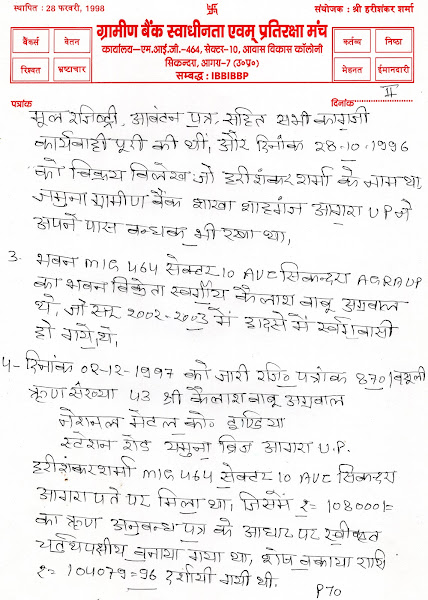 स्थापित : 28 फरवरी, 1998
संयोजक : श्री हरीशंकर शर्मा
ग्रामीण बैंक स्वाधीनता एवम् प्रतिरक्षा मंच
कार्यालय–एम.आई.जी.-464, सैक्टर-10, आवास विकास कॉलोनी
सिकन्दरा, आगरा-7 (उ०प्र०)
सम्बद्ध : IBBIBBP
बैंकर्स वेतन
रिश्वत भ्रष्टाचार
कर्तव्य निष्ठा
मेहनत ईमानदारी
पत्रांक
दिनांक
II
मूल रजिस्ट्री, आवंटन पत्र सहित सभी कागजी
कार्यवाही पूरी की थीं, और दिनांक 28-10-1996
को विक्रय विलेख जो हरीशंकर शर्मा के नाम था
जमुना ग्रामीण बैंक शाखा शाहगंज आगरा UP ने
अपने पास बन्धक भी रखा था,
3. भवन MIG 464 सेक्टर 10 AVC सिकन्दरा AGRA UP
का भवन विक्रेता स्वर्गीय कैलाश बाबू अग्रवाल
थे, जो सन् 2002-2003 में हादसे में स्वर्गवासी
हो गये थे,
4- दिनांक 02-12-1997 को जारी रजि० पत्रांक 870/वसूली
ऋण संख्या 43 श्री कैलाश बाबू अग्रवाल
नेशनल मेटल को० इण्डिया
स्टेशन रोड यमुना ब्रिज आगरा U.P.
हरीशंकर शर्मा MIG 464 सेक्टर 10 AVC सिकन्दरा
आगरा पते पर मिला था, जिसमें रु= 108000/=
का ऋण अनुबन्ध पत्र के आधार पर स्वीकृत
बनाया गया था, शेष बकाया राशि
रु= 104079=96 दर्शायी गयी थी.
P70